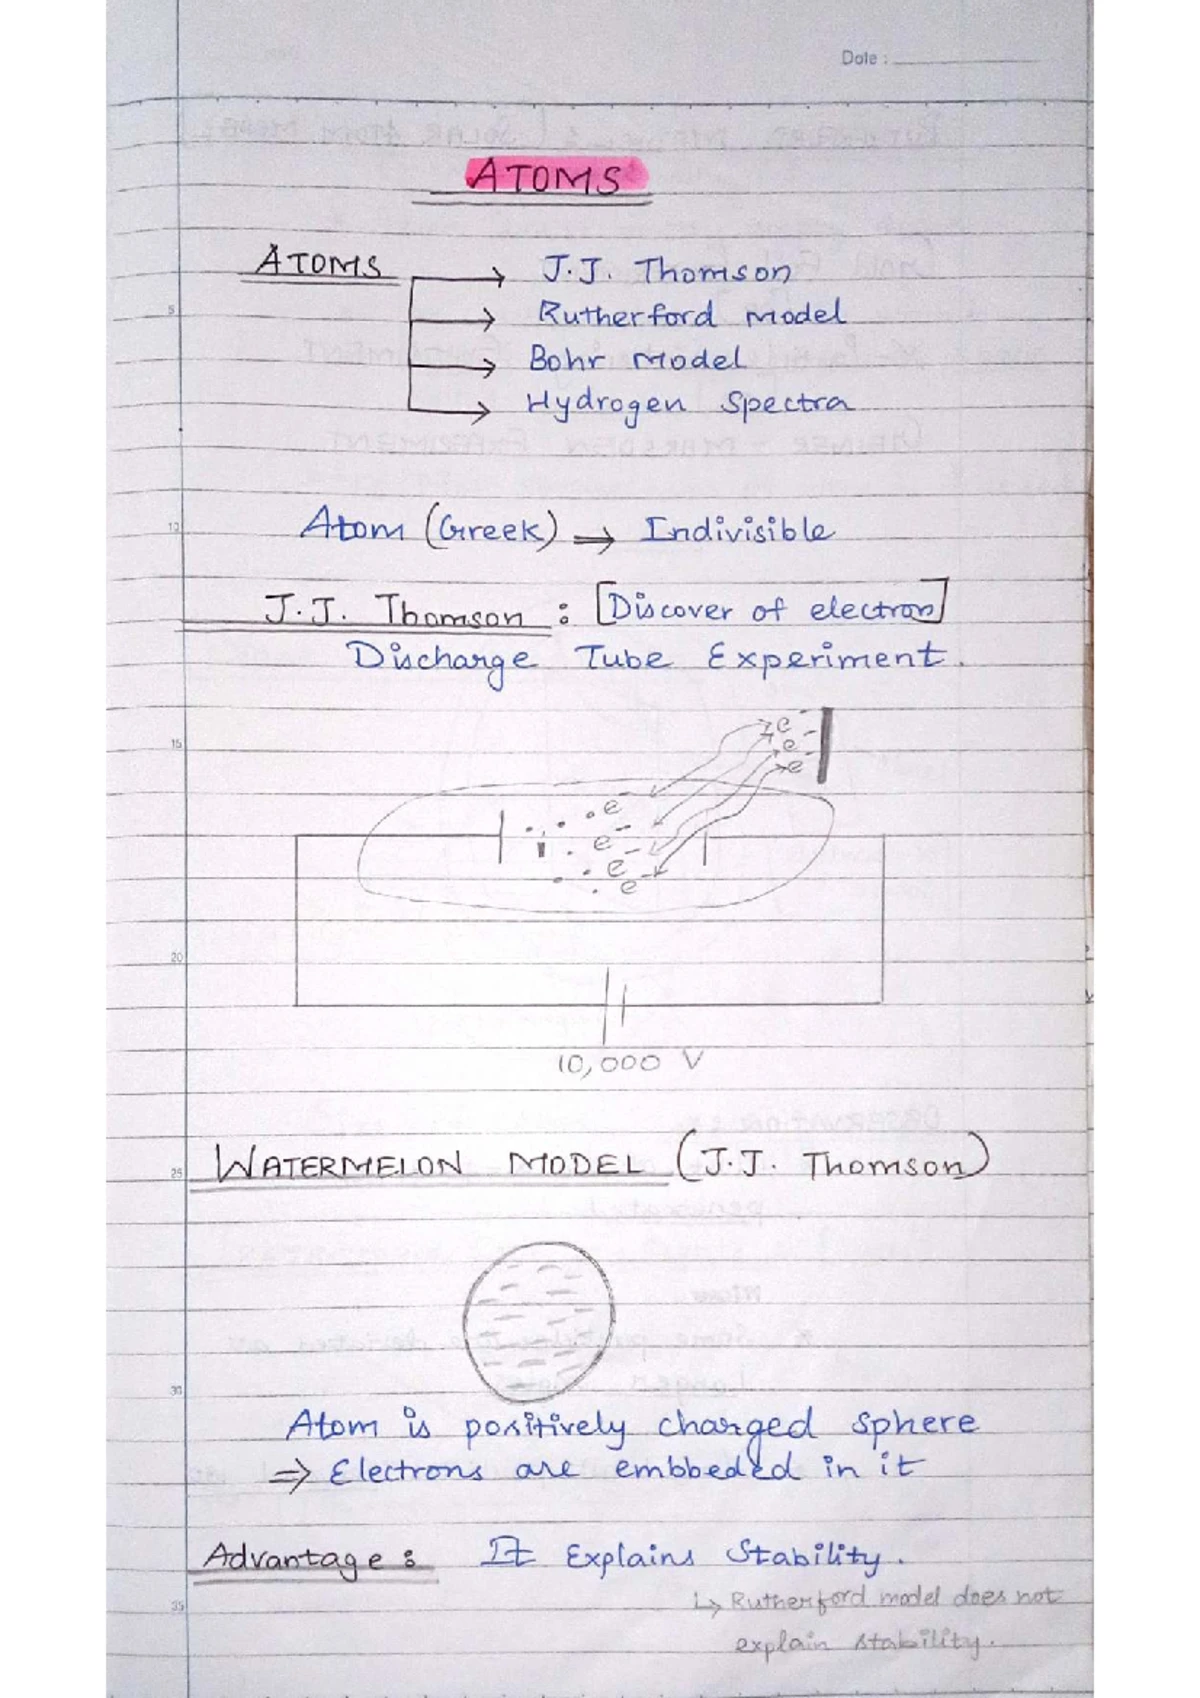 Date :
ATOMS
ATOMS → J.J. Thomson
→ Rutherford Model
5
→ Bohr Model
→ Hydrogen Spectra
10 Atom (Greek) → Indivisible
J.J. Thomson : [Discover of electron]
Discharge Tube Experiment.
15
e
e
e
e
e
e
e
20
10,000 V
25 WATERMELON MODEL (J.J. Thomson)
30
Atom is positively charged sphere
⇒ Electrons are embbeded in it
Advantage : It Explains Stability.
35 ↳ Rutherford model does not
explain stability.